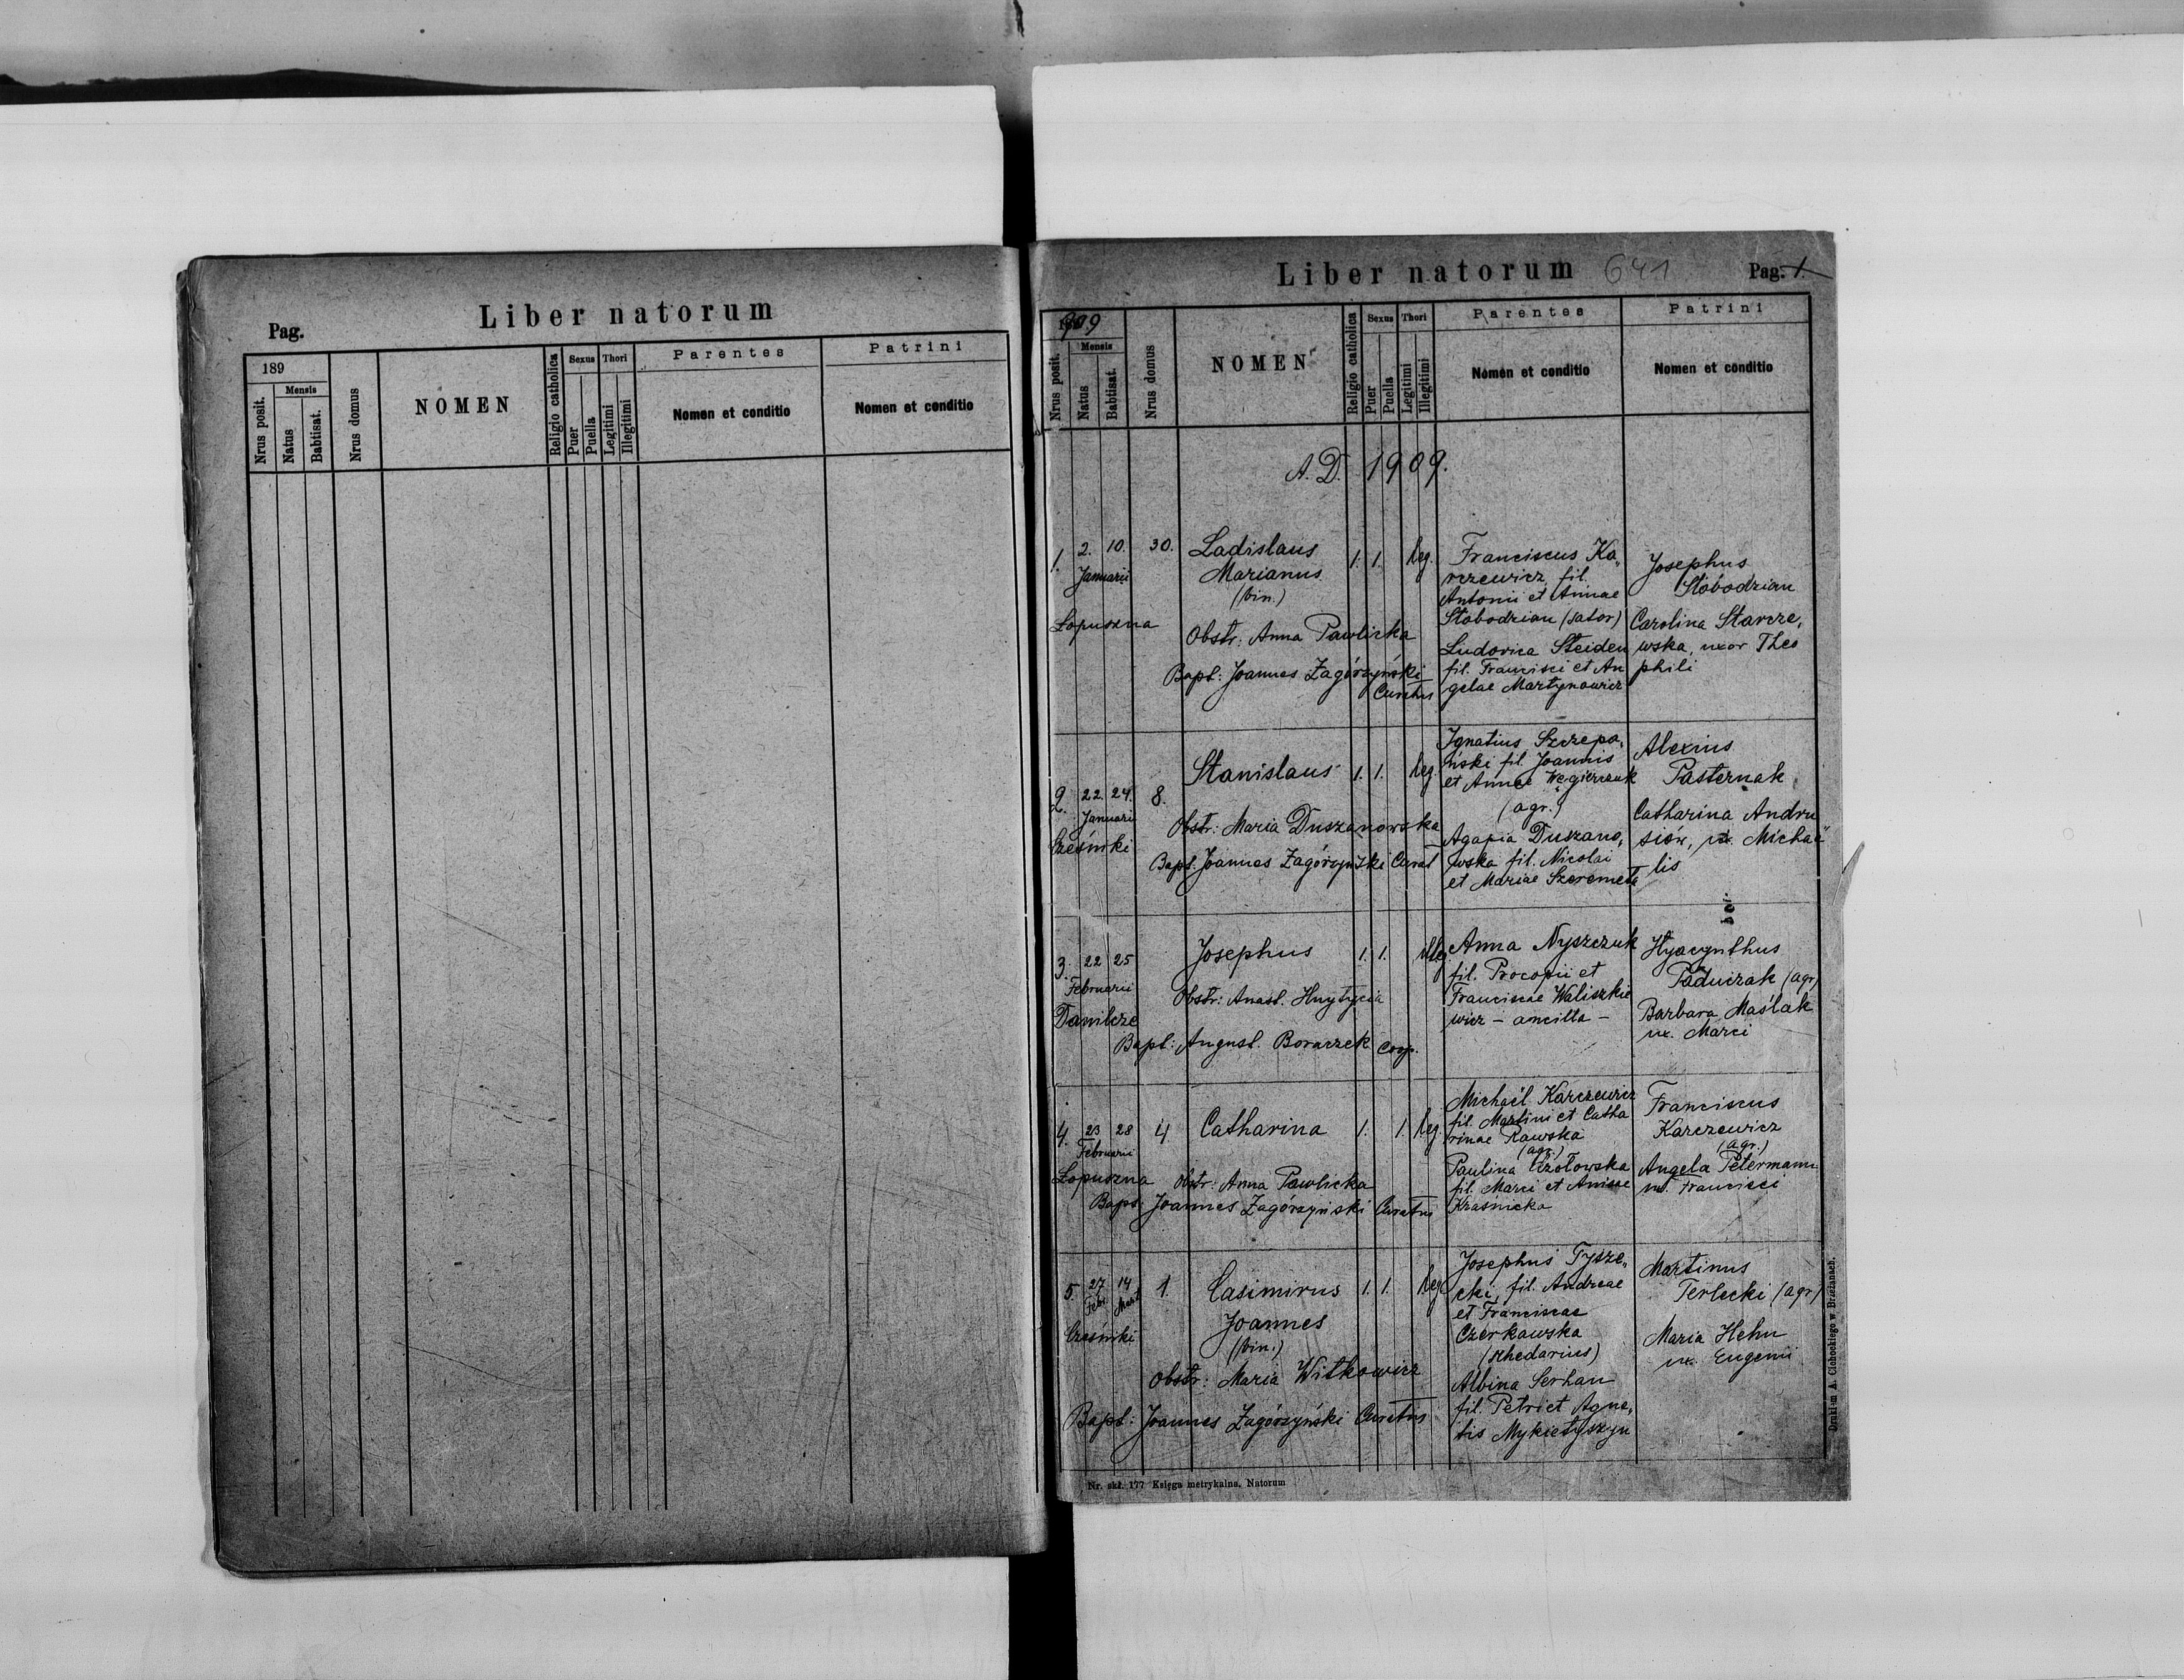 Pag.
Liber natorum
189
Nrus posit.
Mensis
Natus
Babtisat.
Nrus domus
NOMEN
Religio catholica
Sexus
Puer
Puella
Thori
Legitimi
Illegitimi
Parentes
Nomen et conditio
Patrini
Nomen et conditio
Liber natorum 641 Pag. 1.
909
Nrus posit.
Mensis
Natus
Babtisat.
Nrus domus
NOMEN
Religio catholica
Sexus
Puer
Puella
Thori
Legitimi
Illegitimi
Parentes
Nomen et conditio
Patrini
Nomen et conditio
A. D. 1909.
1. 2. 10. 30.
Januarii
Łopuszna
Ladislaus
Marianus
(bin.)
1. 1. leg.
Obstr: Anna Pawlicka
Bapt: Joannes Zagórzyński
Curatus
Franciscus Ka„
rczewicz fil.
Antonii et Annae
Słobodzian (sator)
Ludovica Steiden
fil. Francisci et An
gelae Martynowicz
Josephus
Słobodzian
Carolina Starcze„
wska, uxor Theo
phili
2. 22. 24. 8.
Januarii
Cześniki
Stanislaus 1. 1. leg.
Obstr: Maria Duszanowska
Bapt. Joannes Zagórzyński Curat
Ignatius Szczepa„
ński fil. Joannis
et Annae Węgierczuk
(agr.)
Agapia Duszano„
wska fil. Nicolai
et Mariae Szeremeta
Alexius
Pasternak
Catharina Andru
siów, ux. Michaë
lis
3. 22 25
Februarii
Danilcze
Josephus 1. 1. illeg.
Obstr: Anast. Hnytycia
Bapt: August. Boraczek Coop.
Anna Nyszczuk
fil. Procopii et
Franciscae Waliszkie
wicz - ancilla -
Hyacynthus
Paduczak (agr)
Barbara Maślak
ux. Marci
4. 23 28 4
Februarii
Łopuszna
Catharina 1. 1. leg.
Obstr: Anna Pawlicka
Bapt: Joannes Zagórzyński Curatus
Michaël Karczewicz
fil. Martini et Catha
rinae Rawska
(agr.)
Paulina Czołowska
fil. Marci et Annae
Kraśnicka
Franciscus
Karczewicz
(agr.)
Angela Petermann
ux. Francisci
5. 27 14 1.
Febr Mart
Cześniki
Casimirus 1. 1. leg
Joannes
(bin.)
Obstr: Maria Witkowicz
Bapt: Joannes Zagórzyński Curatus
Josephus Tysze„
cki, fil. Andreae
et Franciscae
Czerkawska
(rhedarius)
Albina Serhan
fil. Petri et Agne„
tis Mykietyszyn
Martinus
Terlecki (agr)
Maria Hehn
ux. Eugenii
Nr. skł. 177 Księga metrykalna. Natorum
Drukiem A. Cichockiego w Brzeżanach.